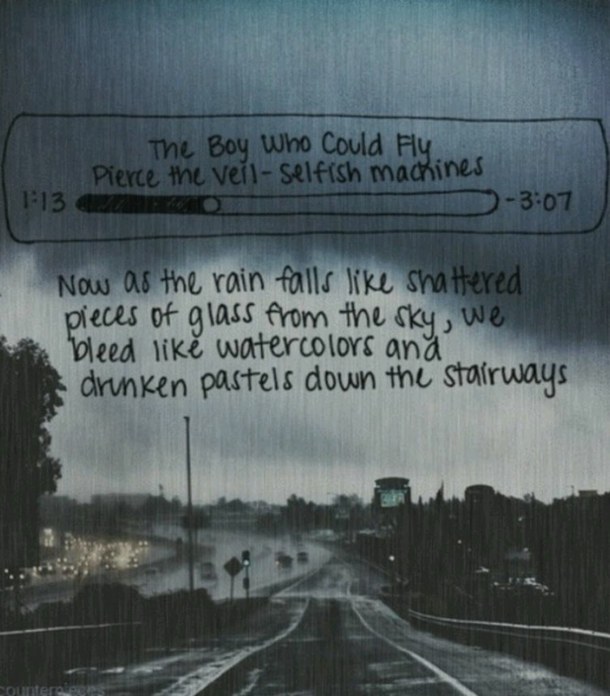 The Boy Who Could Fly
Pierce the Veil - Selfish machines
1:13 -3:07
Now as the rain falls like shattered
pieces of glass from the sky, we
bleed like watercolors and
drunken pastels down the stairways